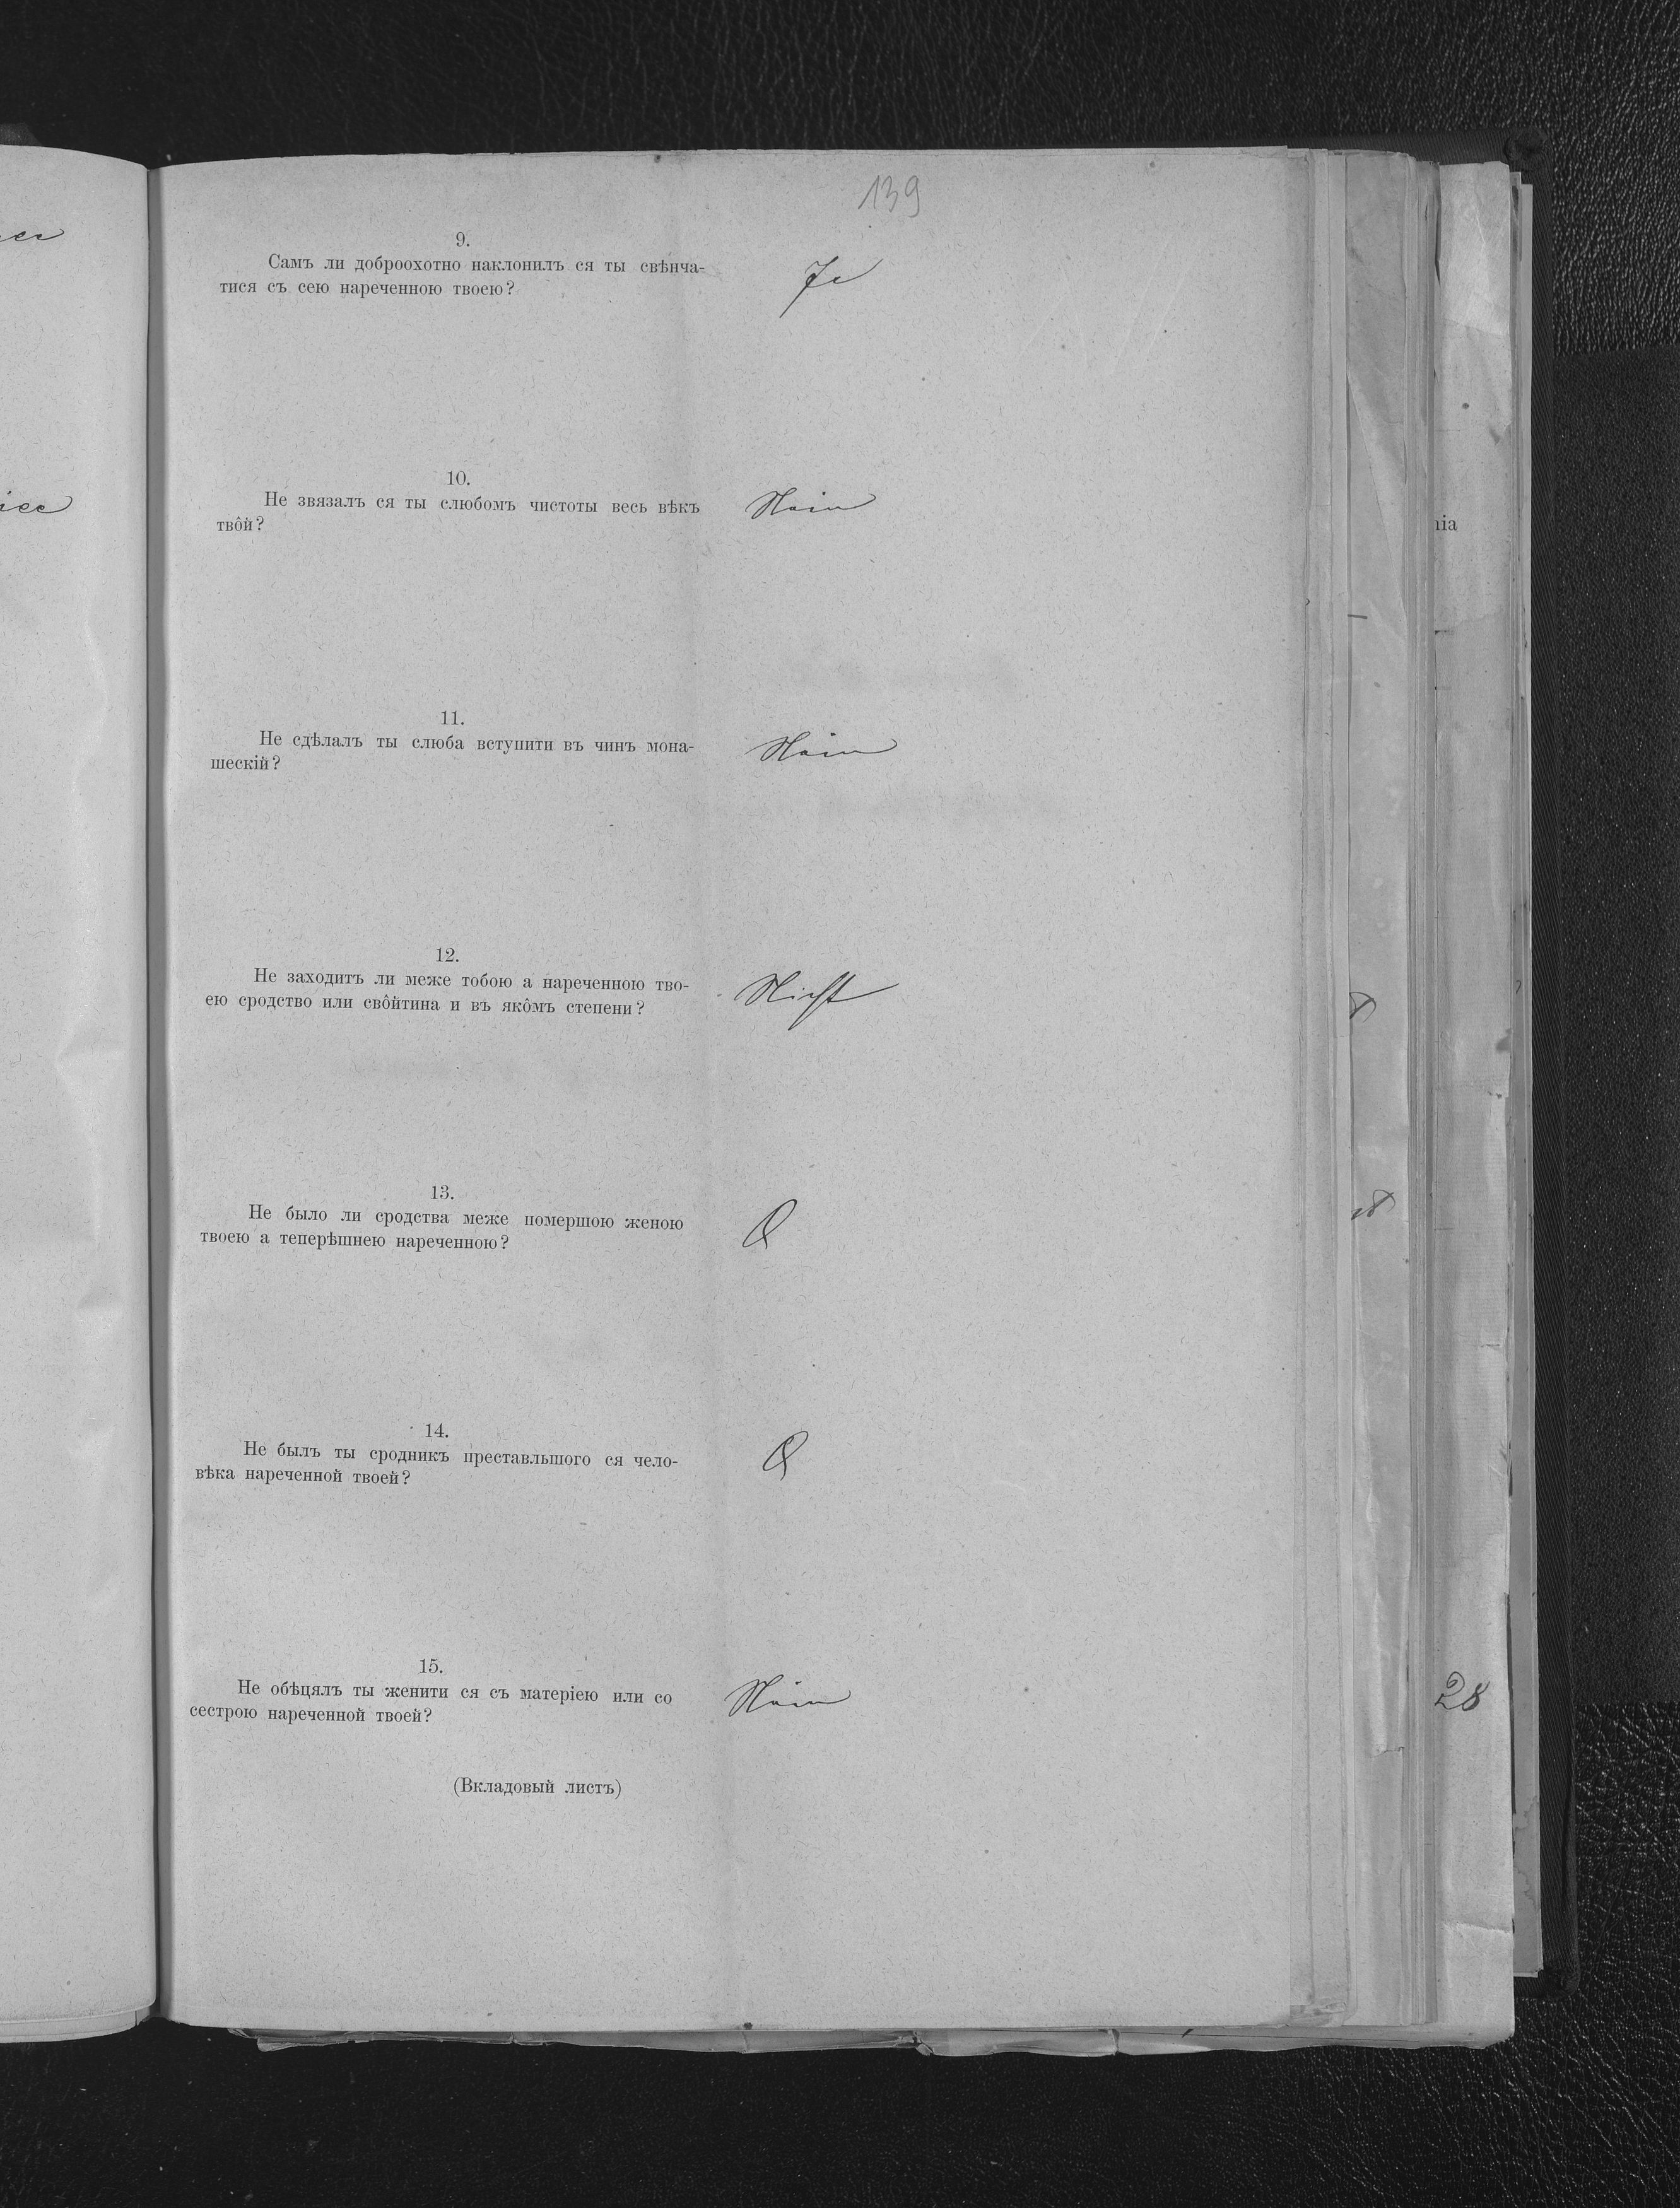 139
9.
Самъ ли доброохотно наклонилъ ся ты свѣнча-
тися съ сею нареченною твоею?
Ja
10.
Не звязалъ ся ты слюбомъ чистоты весь вѣкъ
твôй?
Nein
11.
Не сдѣлалъ ты слюба вступити въ чинъ мона-
шескій?
Nein
12.
Не заходитъ ли меже тобою а нареченною тво-
ею сродство или свôйтина и въ якôмъ степени?
Nicht
13.
Не было ли сродства меже помершою женою
твоею а теперѣшнею нареченною?
14.
Не былъ ты сродникъ преставльшого ся чело-
вѣка нареченной твоей?
15.
Не обѣцялъ ты женити ся съ матеріею или со
сестрою нареченной твоей?
Nein
(Вкладовый листъ)
nia
28